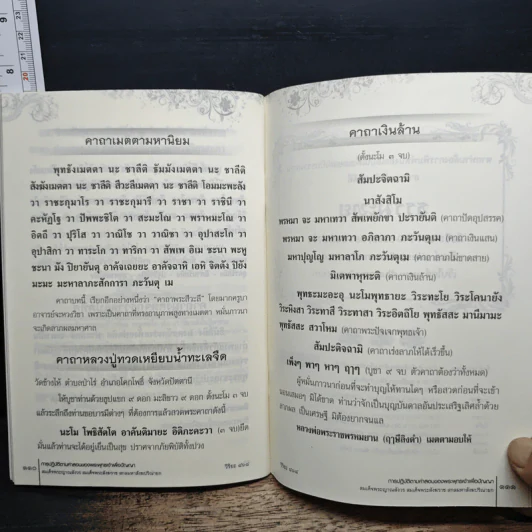 คาถาเมตตามหานิยม
พุทธังเมตตา นะ ชาลีติ ธัมมังเมตตา นะ ชาลีติ
สังฆังเมตตา นะ ชาลีติ สีวะลีเมตตา นะ ชาลีติ โอมมะพะลัง
วา ราชะกุมาโร วา ราชะกุมารี วา ราชา วา ราชินี วา
คะหัฏโฐ วา ปัพพะชิโต วา สะมะโณ วา พราหมะโณ วา
อิตถี วา ปุริโส วา วาณิโช วา วาณิชา วา อุปาสะโก วา
อุปาสิกา วา ทาระโก วา ทาริกา วา สัพเพ อิเม ชะนา พะหู
ชะนา มัง ปิยายันตุ อาคัจเฉยยะ อาคัจฉาหิ เอหิ จิตตัง ปิยัง
มะมะ มะหาลาภะสักการา ภะวันตุ เม
คาถาบทนี้ เรียกอีกอย่างหนึ่งว่า "คาถาพระสีวะลี" โดยมากครูบา
อาจารย์จะหวงวิชา เพราะเป็นคาถาที่ทรงอานุภาพสูงทางเมตตา หมั่นภาวนา
จะเกิดลาภผลมหาศาล
คาถาหลวงปู่ทวดเหยียบน้ำทะเลจืด
วัดช้างให้ ตำบลป่าไร่ อำเภอโคกโพธิ์ จังหวัดปัตตานี
ให้บูชาท่านด้วยธูปแขก ๙ ดอก มะลิขาว ๙ ดอก ตั้งนะโม ๓ จบ
แล้วระลึกถึงท่านขอบารมีต่างๆ ที่ต้องการแล้วสวดพระคาถาดังนี้
นะโม โพธิสัตโต อาคันติมายะ อิติภะคะวา (๓ จบ)ยึด
มั่นแล้วท่านจะได้อยู่เย็นเป็นสุข ปราศจากภัยพิบัติทั้งปวง
๑๑๐
การปฏิบัติตามคำสอนของพระพุทธเจ้าเพื่อปัญญา
คาถาเงินล้าน
(ตั้งนะโม ๓ จบ)
สัมปะจิตฉามิ
นาสังสิโม
พรหมา จะ มหาเทวา สัพเพยักขา ปะรายันติ (คาถาปัดอุปสรรค)
พรหมา จะ มหาเทวา อภิลาภา ภะวันตุเม (คาถาเงินแสน)
มหาปุญโญ มหาลาโภ ภะวันตุเม (คาถาลาภไม่ขาดสาย)
มิเตพาหุหะติ (คาถาเงินล้าน)
พุทธะมะอะอุ นะโมพุทธายะ วิระทะโย วิระโคนายัง
วิระหิงสา วิระทาสี วิระทาสา วิระอิตถิโย พุทธัสสะ มานีมามะ
พุทธัสสะ สวาโหม (คาถาพระปัจเจกพุทธเจ้า)
สัมปะติจฉามิ (คาถาเร่งลาภให้ได้เร็วขึ้น)
เพ็งๆ พาๆ หาๆ ฤาๆ (บูชา ๙ จบ ตัวคาถาต้องว่าทั้งหมด)
ผู้หมั่นภาวนาก่อนที่จะทำบุญให้ทานใดๆ หรือสวดก่อนที่จะเข้า
นอนเสมอๆ มิได้ขาด ท่านว่าจักเป็นบุญบันดาลอันประเสริฐเลิศล้ำด้วย
ลาภผล เป็นเศรษฐี มิต้องยากจนแล
หลวงพ่อพระราชพรหมยาน (ฤาษีลิงดำ) เมตตามอบให้
การปฏิบัติตามคำสอนของพระพุทธเจ้าเพื่อปัญญา
๑๑๑